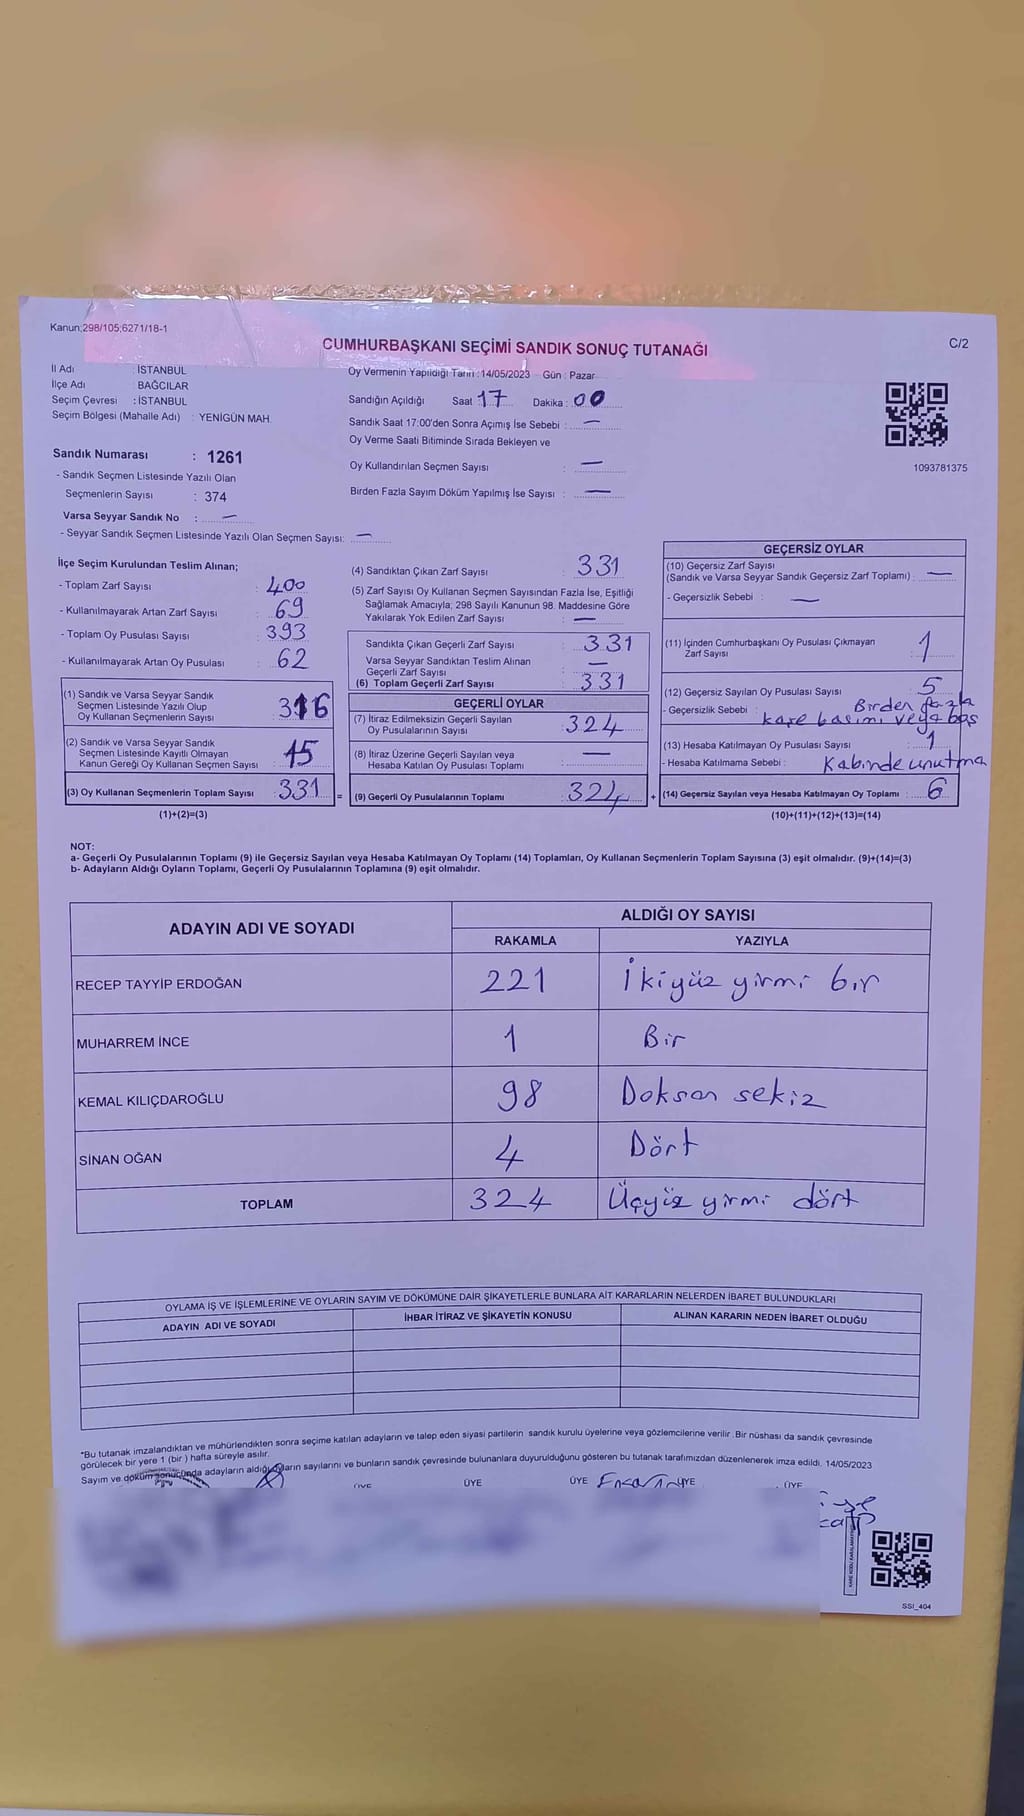 Kanun;298/105;6271/18-1
CUMHURBAŞKANI SEÇİMİ SANDIK SONUÇ TUTANAĞI
C/2
İl Adı : İSTANBUL
İlçe Adı : BAĞCILAR
Seçim Çevresi : İSTANBUL
Seçim Bölgesi (Mahalle Adı) : YENİGÜN MAH.
Sandık Numarası : 1261
- Sandık Seçmen Listesinde Yazılı Olan
Seçmenlerin Sayısı : 374
Varsa Seyyar Sandık No : —
- Seyyar Sandık Seçmen Listesinde Yazılı Olan Seçmen Sayısı: —
Oy Vermenin Yapıldığı Tarih : 14/05/2023 Gün : Pazar
Sandığın Açıldığı Saat : 17 Dakika : 00
Sandık Saat 17:00'den Sonra Açımış İse Sebebi : —
Oy Verme Saati Bitiminde Sırada Bekleyen ve
Oy Kullandırılan Seçmen Sayısı : —
Birden Fazla Sayım Döküm Yapılmış İse Sayısı : —
1093781375
İlçe Seçim Kurulundan Teslim Alınan;
- Toplam Zarf Sayısı : 400
- Kullanılmayarak Artan Zarf Sayısı : 69
- Toplam Oy Pusulası Sayısı : 393
- Kullanılmayarak Artan Oy Pusulası : 62
(1) Sandık ve Varsa Seyyar Sandık
Seçmen Listesinde Yazılı Olup
Oy Kullanan Seçmenlerin Sayısı : 316
(2) Sandık ve Varsa Seyyar Sandık
Seçmen Listesinde Kayıtlı Olmayan
Kanun Gereği Oy Kullanan Seçmen Sayısı : 15
(3) Oy Kullanan Seçmenlerin Toplam Sayısı : 331 =
(1)+(2)=(3)
(4) Sandıktan Çıkan Zarf Sayısı : 331
(5) Zarf Sayısı Oy Kullanan Seçmen Sayısından Fazla İse, Eşitliği
Sağlamak Amacıyla, 298 Sayılı Kanunun 98. Maddesine Göre
Yakılarak Yok Edilen Zarf Sayısı : —
Sandıkta Çıkan Geçerli Zarf Sayısı : 331
Varsa Seyyar Sandıktan Teslim Alınan
Geçerli Zarf Sayısı : —
(6) Toplam Geçerli Zarf Sayısı : 331
GEÇERLİ OYLAR
(7) İtiraz Edilmeksizin Geçerli Sayılan
Oy Pusulalarının Sayısı : 324
(8) İtiraz Üzerine Geçerli Sayılan veya
Hesaba Katılan Oy Pusulası Toplamı : —
(9) Geçerli Oy Pusulalarının Toplamı : 324 +
GEÇERSİZ OYLAR
(10) Geçersiz Zarf Sayısı
(Sandık ve Varsa Seyyar Sandık Geçersiz Zarf Toplamı) : —
- Geçersizlik Sebebi : —
(11) İçinden Cumhurbaşkanı Oy Pusulası Çıkmayan
Zarf Sayısı : 1
(12) Geçersiz Sayılan Oy Pusulası Sayısı : 5
- Geçersizlik Sebebi : Birden fazla
kaşe basımı veya boş
(13) Hesaba Katılmayan Oy Pusulası Sayısı : 1
- Hesaba Katılmama Sebebi : Kabinde unutma
(14) Geçersiz Sayılan veya Hesaba Katılmayan Oy Toplamı : 6
(10)+(11)+(12)+(13)=(14)
NOT:
a- Geçerli Oy Pusulalarının Toplamı (9) ile Geçersiz Sayılan veya Hesaba Katılmayan Oy Toplamı (14) Toplamları, Oy Kullanan Seçmenlerin Toplam Sayısına (3) eşit olmalıdır. (9)+(14)=(3)
b- Adayların Aldığı Oyların Toplamı, Geçerli Oy Pusulalarının Toplamına (9) eşit olmalıdır.
ADAYIN ADI VE SOYADI ALDIĞI OY SAYISI
RAKAMLA YAZIYLA
RECEP TAYYİP ERDOĞAN 221 İkiyüz yirmi bir
MUHARREM İNCE 1 Bir
KEMAL KILIÇDAROĞLU 98 Doksan sekiz
SİNAN OĞAN 4 Dört
TOPLAM 324 Üçyüz yirmi dört
OYLAMA İŞ VE İŞLEMLERİNE VE OYLARIN SAYIM VE DÖKÜMÜNE DAİR ŞİKAYETLERLE BUNLARA AİT KARARLARIN NELERDEN İBARET BULUNDUKLARI
ADAYIN ADI VE SOYADI İHBAR İTİRAZ VE ŞİKAYETİN KONUSU ALINAN KARARIN NEDEN İBARET OLDUĞU
*Bu tutanak imzalandıktan ve mühürlendikten sonra seçime katılan adayların ve talep eden siyasi partilerin sandık kurulu üyelerine veya gözlemcilerine verilir. Bir nüshası da sandık çevresinde
görülecek bir yere 1 (bir) hafta süreyle asılır.
Sayım ve döküm sonucunda adayların aldığı oyların sayılarını ve bunların sandık çevresinde bulunanlara duyurulduğunu gösteren bu tutanak tarafımızdan düzenlenerek imza edildi. 14/05/2023
ÜYE ÜYE ÜYE ÜYE ÜYE
SSI_404